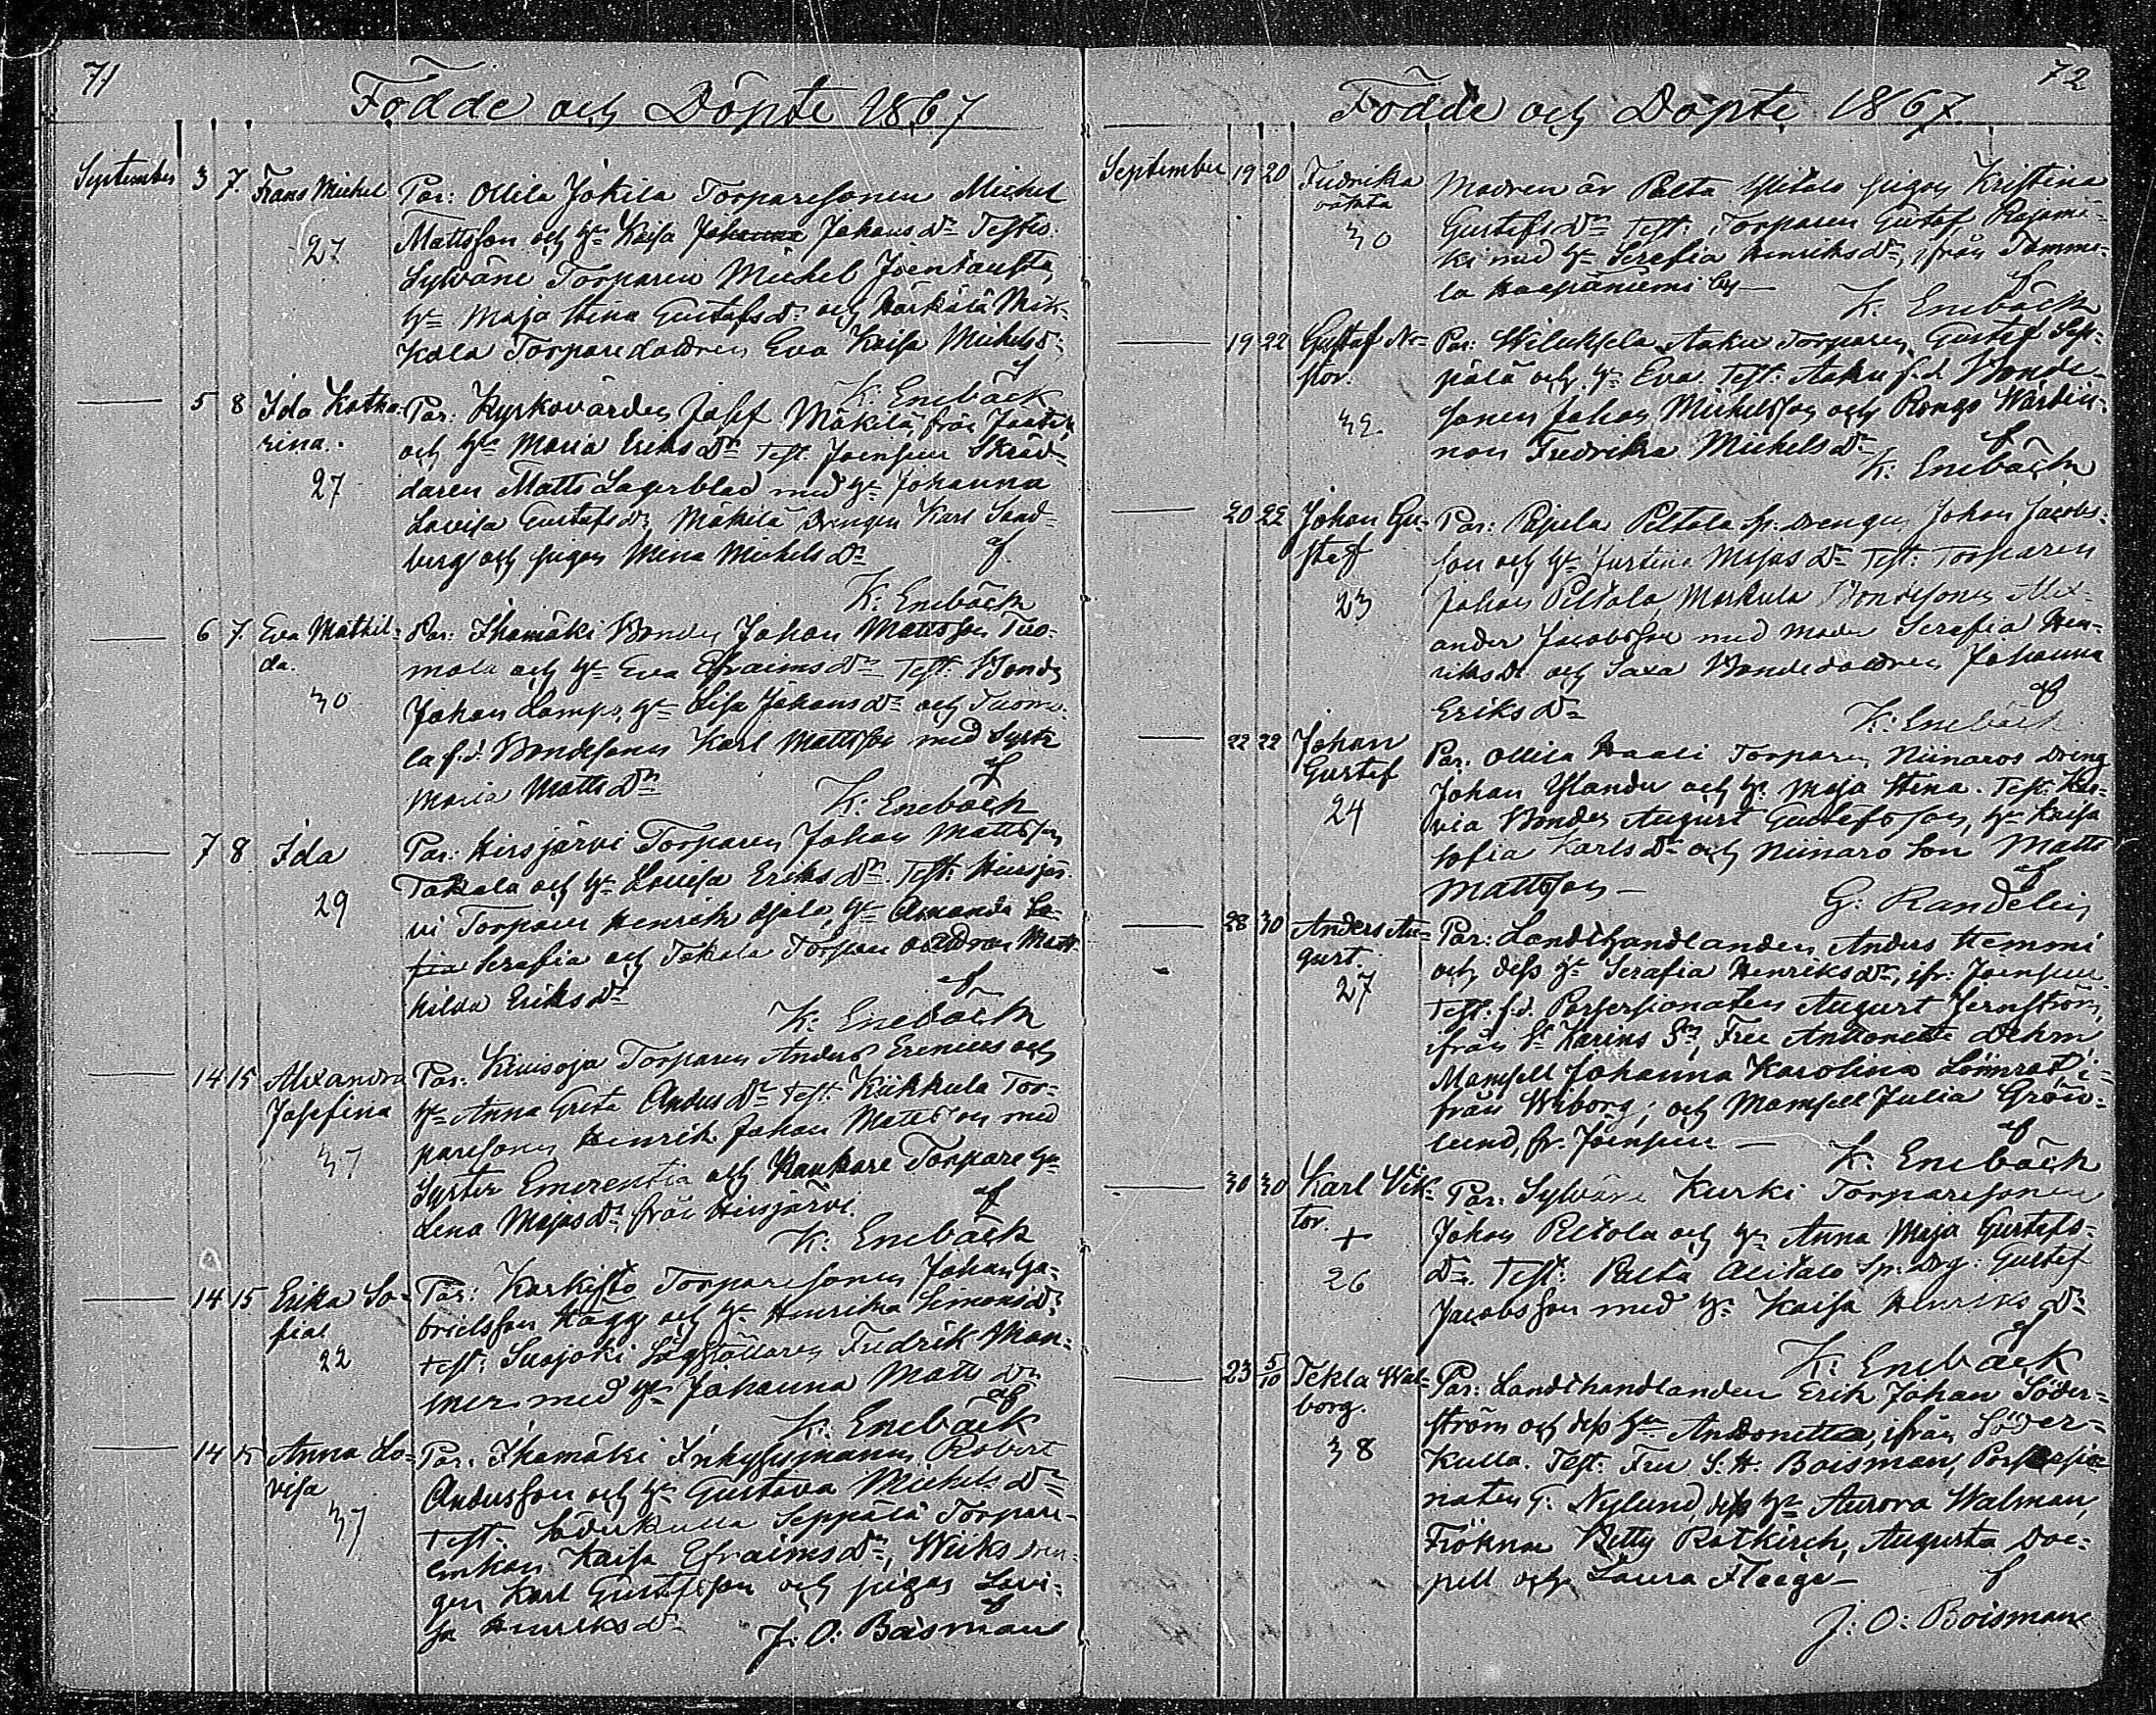 71
Födde och Döpte 1867
September 3 7. Frans Michel Par: Ollila Jokila Torparesonen Michel
27 Mattsson och h. Kaisa Johanna Johans dr Testes.
Sylväne Torparen Michel Joentausta,
hu Maja Stina Gustafs dr och Härkälä Mik-
kola Torparedottren Eva Kaisa Michels dr
af
K: Enebäck
5 8 Ida Katha- Par: Kyrkovärden Josef Mäkilä från
rina. och hu Maria Eriks dr Test. Joensuu Skräd-
27 daren Matts Lagerblad med hu Johanna
Lovisa Gustafs dr, Mäkilä Drengen Karl Sand-
berg och pigan Mina Michels dr af
K: Enebäck
6 7. Eva Mathil- Par: Ihamäki Bonden Johan Mattsson Tuo-
da. mola och hu Eva Efraims dr Test: Bonden
30 Johan Lamps, hu Lisa Johans dr och Tuomo-
la f.d. Bondesonen Karl Mattsson med Syster
Maria Matts dr af
K: Enebäck
7 8 Ida Par: Hirsjärvi Torparen Johan Mattsson
29 Takala och hu Lovisa Eriks dr. Test: Hirsjär-
vi Torparen Henrik Ojala, hu Amanda So-
fia Serafia och Takala Torpare dottren Mat-
hilda Eriks dr af
K: Enebäck
14 15 Alexandra Par: Kiuisoja Torparen Anders Erenius och
Josefina hu Anna Greta Anders dr Test. Kiikkula Tor-
37 paresonen Henrik Johan Mattsson med
Syster Emerentia och Kaukare Torpare hu
Lena Majas dr från Hirsjärvi. af
K: Enebäck
14 15 Erika So- Par: Karkisto Torparesonen Johan Ga-
fia brielsson Hägg och hu Henrika Simons dr
22 Test: Suojoki Fredrik Man-
ner med hu Johanna Matts dr
af
K: Enebäck
14 15 Anna Lo- Par. Ihamäki Inhysesmannen Robert
visa Andersson och hu Gustava Michels dr
37 Test. Söderkulla Seppälä Torpare-
enkan Kaisa Efraims dr, Wiiks Dren-
gen Karl Gustafsson och pigan Lovi-
sa Henriks dr af
J: O: Boisman
72
Födde och Döpte 1867.
September 19 20 Fredrika Modren är Palta Ylitalo pigan Kristina
oäkta Gustafs dr Test: Torparen Gustaf Rajamä-
30 ki med hu Serafia Henriks dr, ifrån Tamme-
la Haapaniemi by af
K: Enebäck
19 22 Gustaf Ne- Par: Wiluksela Aaku Torparen Gustaf Sep-
stor. pälä och hu Eva. Test: Aaku f.d. Bonde-
32 sonen Johan Michelsson och Rongo Wärdin-
nan Fredrika Michels dr af
K: Enebäck
20 22 Johan Gu- Par: Peltola Sp: Drengen Johan Jacobs-
staf son och hu Justina Majas dr Test: Torparen
23 Johan Peltola, Markula Bondesonen Alex-
ander Jacobsson med moder Serafia Hen-
riks dr och Saxa Bondedottren Johanna
Eriks dr af
K: Enebäck
22 22 Johan Par. Ollila Torparen Niinaros Dreng
Gustaf Johan Ylander och hu Maja Stina. Test:
24 Bonden August Gustafsson, hu Kaisa
Sofia Karls dr och Niinaro Son Matts
Mattsson af
G: Randelin
28 30 Anders Au- Par: Landthandlanden Anders Hemmi
gust. och dess hu Serafia Henriks dr, ifr: Joensuu.
27 Test: f.d. Possessionaten August Jernström,
ifrån St Karins Sn, Fru Antonette Oehm
Mamsell Johanna Karolina Lönnrot i-
från Wiborg; och Mamsell Julia Grön-
lund, fr. Joensuu af
K: Enebäck
30 30 Karl Vik- Par: Sylväne Kurki Torparesonen
tor. Johan Peltola och hu Anna Maja Gustafs-
+ dr. Test: Palta Alitalo Sp: Drg: Gustaf
26 Jacobsson med hu Kaisa Henriks dr
af
K: Enebäck
23 5/10 Tekla Wal- Par: Landthandlanden Erik Johan Söder-
borg. ström och dess hu Antonetta, ifrån Söder-
38 kulla. Test: Fru S. H. Boisman, Possessio-
naten G. Nylund, dess hu Aurora Walman,
Fröknar Betty Rotkirch, Augusta Doe-
pell och Laura Fleege af
J: O: Boisman